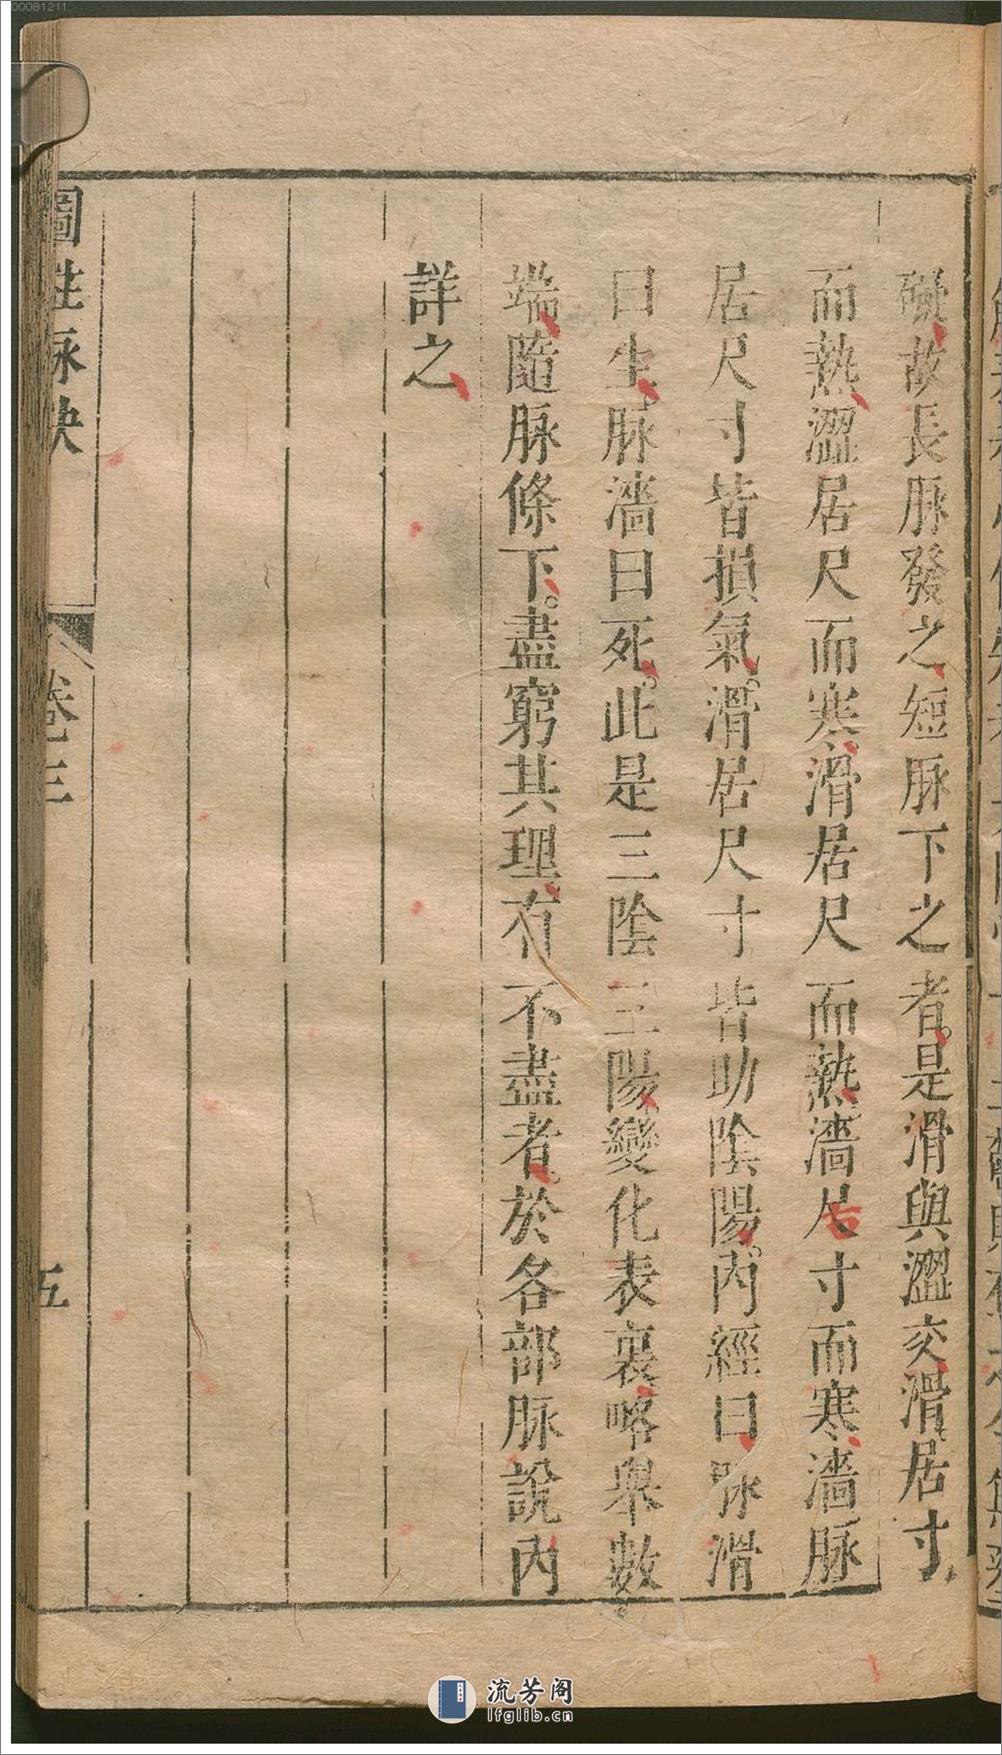 礙故長脉發之短脉下之者是滑與澀交滑居寸
而熱澀居尺而寒滑居尺而熱濇尺寸而寒濇脉
居尺寸皆損氣滑居尺寸皆助陰陽内經曰脉滑
曰生脉濇曰死此是三陰三陽變化表裏略舉數
端隨脉條下盡窮其理有不盡者於各部脉說内
詳之
圖註脉訣
卷三
五
右
00081211
流芳阁
lfglib.cn